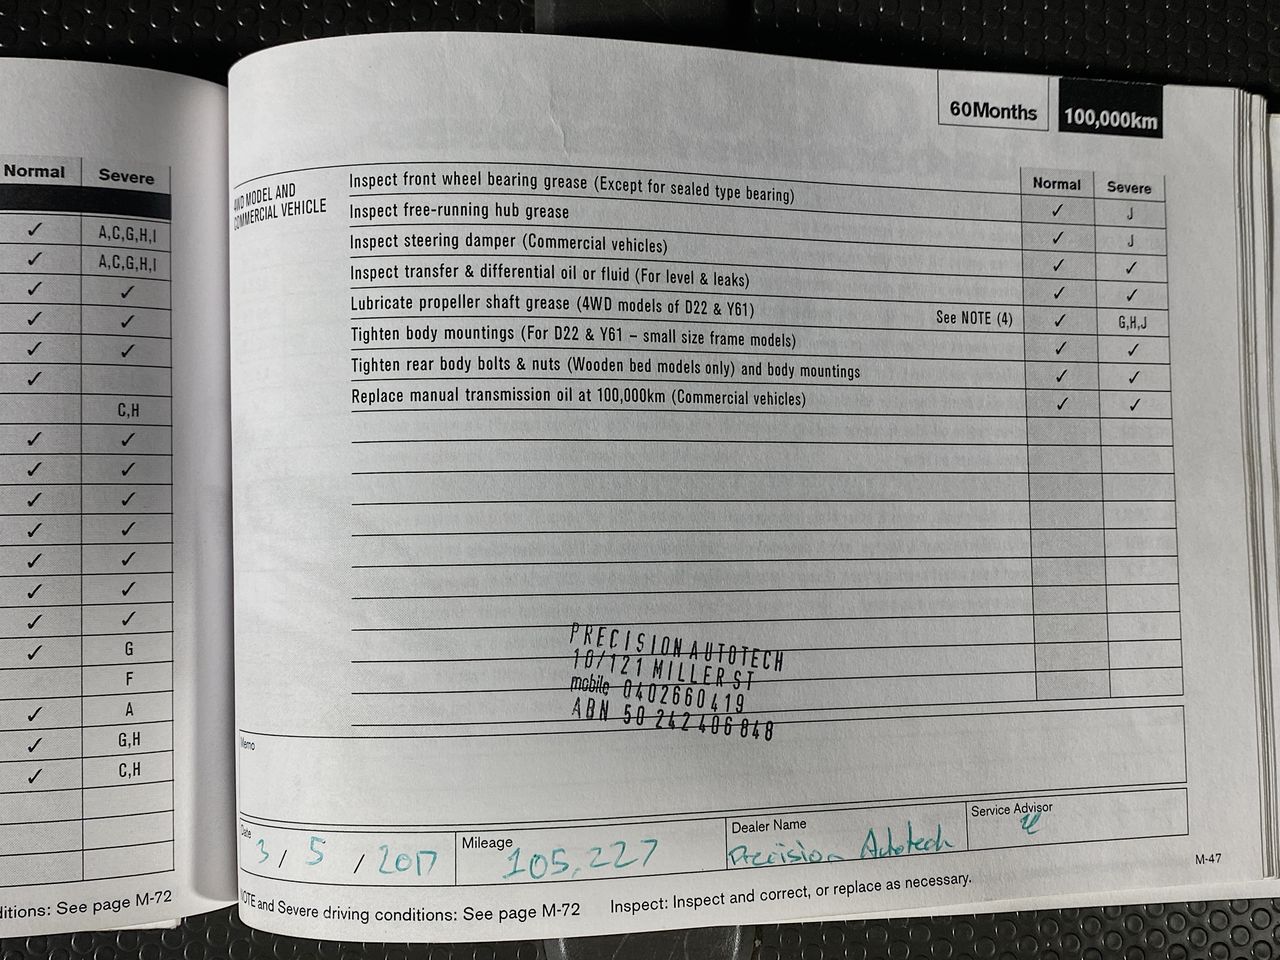 Normal Severe
✓ A,C,G,H,I
✓ A,C,G,H,I
✓ ✓
✓ ✓
✓ ✓
✓
C,H
✓ ✓
✓ ✓
✓ ✓
✓ ✓
✓ ✓
✓ ✓
✓ ✓
✓ G
F
✓ A
✓ G,H
✓ C,H
ditions: See page M-72
60Months 100,000km
Normal Severe
4WD MODEL AND
COMMERCIAL VEHICLE
Inspect front wheel bearing grease (Except for sealed type bearing) ✓ J
Inspect free-running hub grease ✓ J
Inspect steering damper (Commercial vehicles) ✓ ✓
Inspect transfer & differential oil or fluid (For level & leaks) ✓ ✓
Lubricate propeller shaft grease (4WD models of D22 & Y61) See NOTE (4) ✓ G,H,J
Tighten body mountings (For D22 & Y61 – small size frame models) ✓ ✓
Tighten rear body bolts & nuts (Wooden bed models only) and body mountings ✓ ✓
Replace manual transmission oil at 100,000km (Commercial vehicles) ✓ ✓
PRECISION AUTOTECH
10/121 MILLER ST
mobile 0402660419
ABN 50 242 406 848
Memo
Date 3 / 5 / 2017 Mileage 105,227 Dealer Name Precision Autotech Service Advisor
M-47
NOTE and Severe driving conditions: See page M-72 Inspect: Inspect and correct, or replace as necessary.